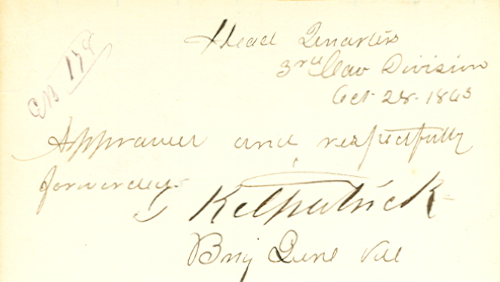 Head Quarters
3rd Cav Division
Oct. 28. 1863
Approved and respectfully
forwarded.
J Kilpatrick
Brig Genl Vol